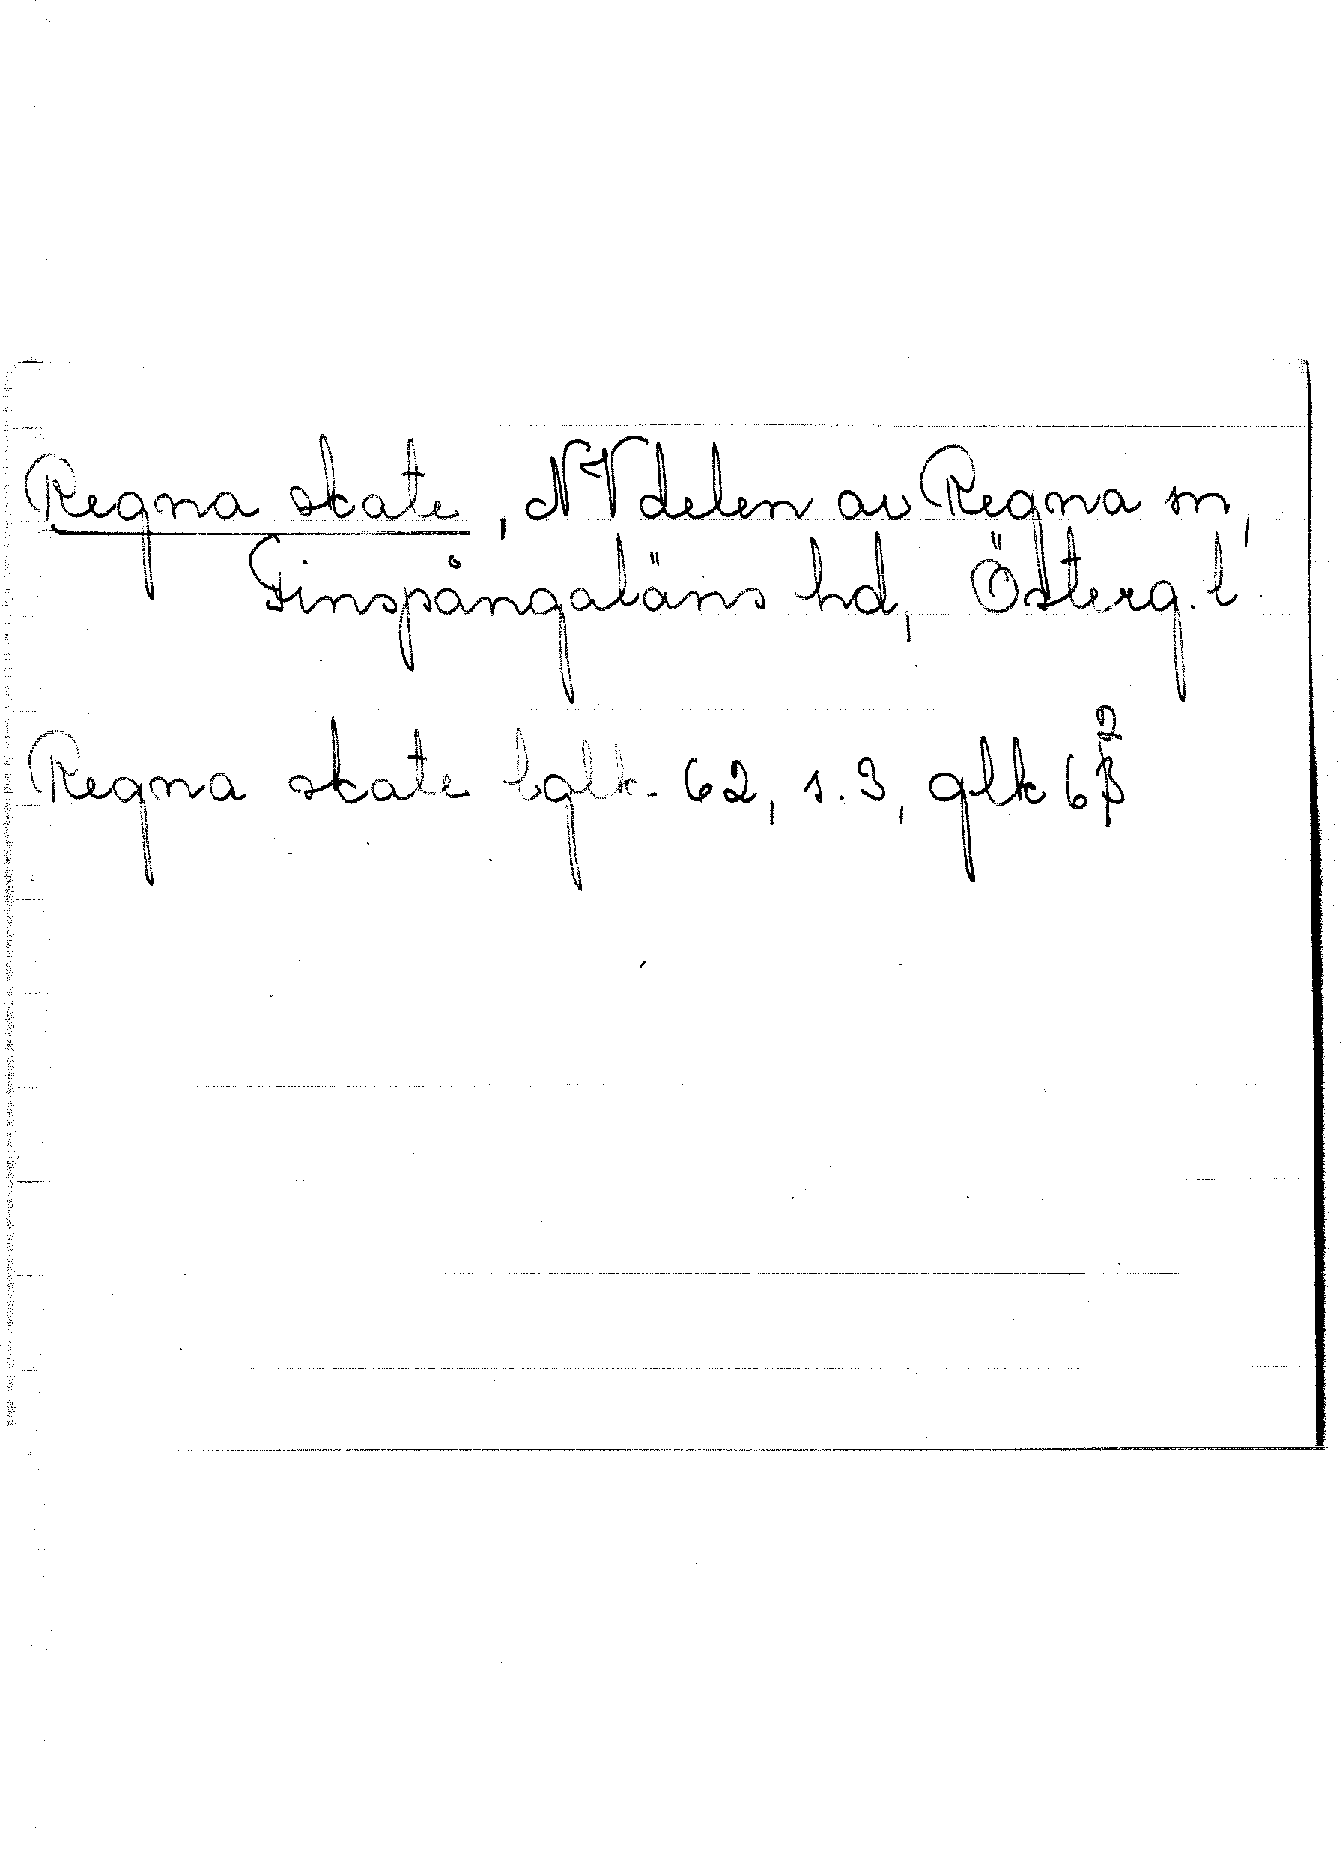 Regna skate, NV delen av Regna sn,
Finspångaläns hd, Österg. l.
Regna skate bglk. 62, s. 3, glk 62